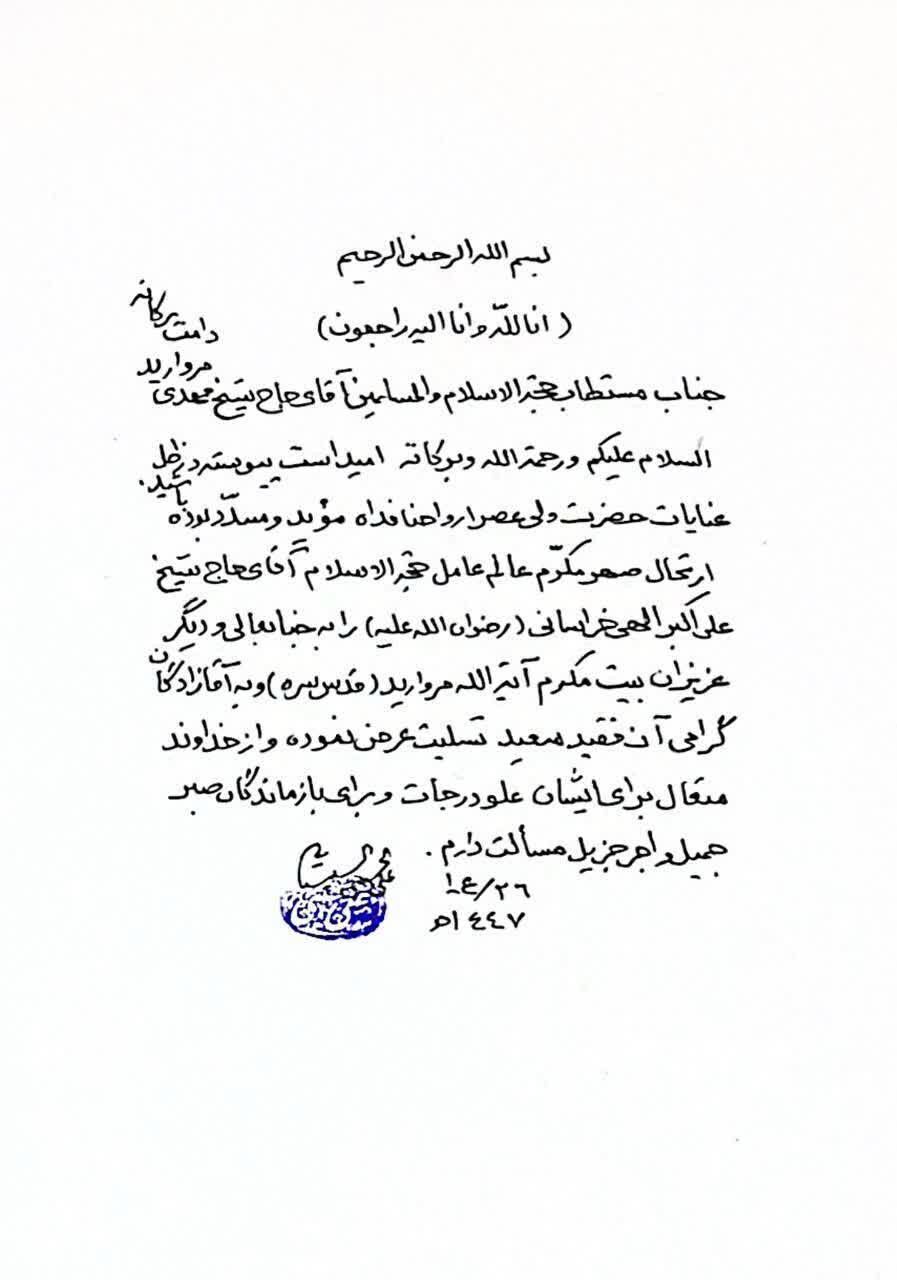 بسم الله الرحمن الرحیم
(انا للّه و انا الیه راجعون)
جناب مستطاب حجة الاسلام والمسلمین آقای حاج شیخ مهدی مروارید دامت برکاته
السلام علیکم ورحمة الله وبرکاته امید است پیوسته در ظل
عنایات حضرت ولی عصر ارواحنا فداه مؤید و مسدّد بوده باشید.
ارتحال صهر مکرّم عالم عامل حجة الاسلام آقای حاج شیخ
علی اکبر الهی خراسانی (رضوان الله علیه) را به جنابعالی و دیگر
عزیزان بیت مکرم آیة الله مروارید (قدس سره) و به آقازادگان
گرامی آن فقید سعید تسلیت عرض نموده و از خداوند
متعال برای ایشان علو درجات و برای بازماندگان صبر
جمیل و اجر جزیل مسألت دارم.
٢٦/ع١
١٤٤٧هـ